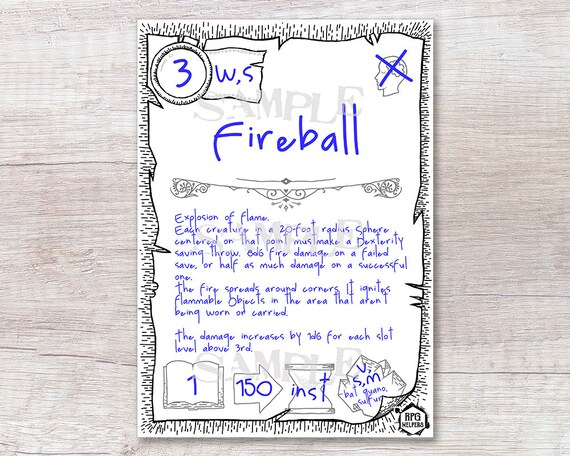 3 w,s
SAMPLE
Fireball
Explosion of flame.
Each creature in a 20-foot radius Sphere
centered on that point must make a Dexterity
saving throw. 8d6 fire damage on a failed
save, or half as much damage on a successful
one.
The fire spreads around corners. It ignites
flammable Objects in the area that aren't
being worn or carried.
SAMPLE
The damage increases by 1d6 for each slot
level above 3rd.
SAMPLE
1 150 inst v,
s,m
bat guano,
sulfur
RPG
HELPERS